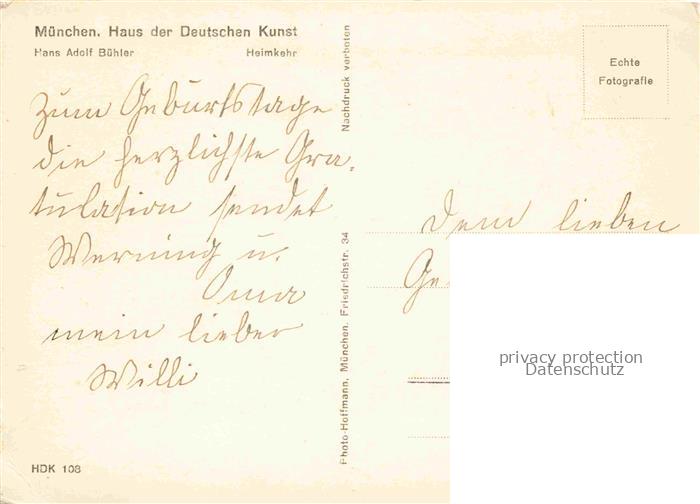 München. Haus der Deutschen Kunst
Hans Adolf Bühler Heimkehr
Zum Geburtstage
die herzlichste Gra-
tulation sendet
Werning u.
Oma
mein lieber
Willi
HDK 108
Photo-Hoffmann, München, Friedrichstr. 34
Nachdruck verboten
Echte
Fotografie
Dem lieben
Ge
privacy protection
Datenschutz